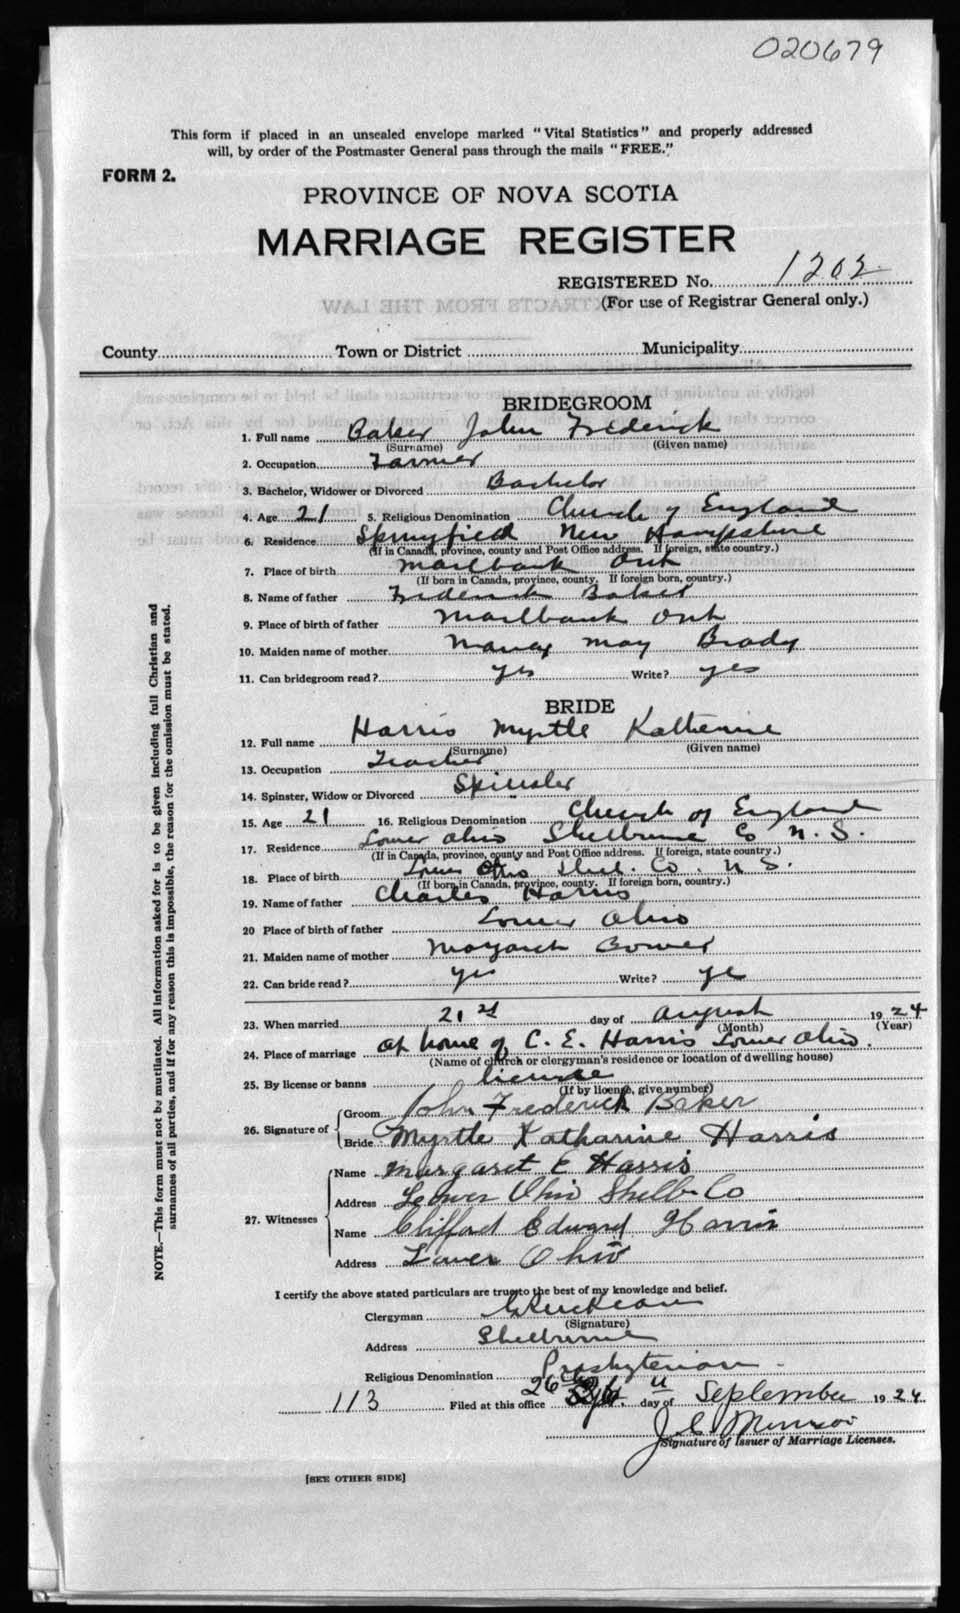 020679
This form if placed in an unsealed envelope marked "Vital Statistics" and properly addressed
will, by order of the Postmaster General pass through the mails "FREE."
FORM 2.
PROVINCE OF NOVA SCOTIA
MARRIAGE REGISTER
REGISTERED No. 1202
(For use of Registrar General only.)
EXTRACTS FROM THE LAW
County Town or District Municipality
BRIDEGROOM
1. Full name Baker John Frederick
(Surname) (Given name)
2. Occupation Farmer
3. Bachelor, Widower or Divorced Bachelor
4. Age 21 5. Religious Denomination Church of England
6. Residence Springfield New Hampshire
(If in Canada, province, county and Post Office address. If foreign, state country.)
7. Place of birth Marlbank Ont
(If born in Canada, province, county. If foreign born, country.)
8. Name of father Frederick Baker
9. Place of birth of father Marlbank Ont
10. Maiden name of mother May Brady
11. Can bridegroom read? yes Write? yes
BRIDE
12. Full name Harris Myrtle Katherine
(Surname) (Given name)
13. Occupation Teacher
14. Spinster, Widow or Divorced Spinster
15. Age 21 16. Religious Denomination Church of England
17. Residence Lower Ohio Shelburne Co N. S.
(If in Canada, province, county and Post Office address. If foreign, state country.)
18. Place of birth Lower Ohio Shel. Co. N S.
(If born in Canada, province, county. If foreign born, country.)
19. Name of father Charles Harris
20 Place of birth of father Lower Ohio
21. Maiden name of mother Margaret Bower
22. Can bride read? yes Write? ye
23. When married 21st day of August 1924
(Month) (Year)
24. Place of marriage at home of C. E. Harris Lower Ohio.
(Name of church or clergyman's residence or location of dwelling house)
25. By license or banns license
(If by license, give number)
26. Signature of Groom John Frederick Baker
Bride Myrtle Katharine Harris
27. Witnesses
Name Margaret E Harris
Address Lower Ohio Shelb. Co
Name Clifford Edward Harris
Address Lower Ohio
I certify the above stated particulars are true to the best of my knowledge and belief.
Clergyman
(Signature)
Address Shelburne
Religious Denomination Presbyterian
113 Filed at this office 26th day of September 1924
J. C. Morrison
Signature of Issuer of Marriage Licenses.
[SEE OTHER SIDE]
NOTE.—This form must not be mutilated. All information asked for is to be given including full Christian and
surnames of all parties, and if for any reason this is impossible, the reason for the omission must be stated.